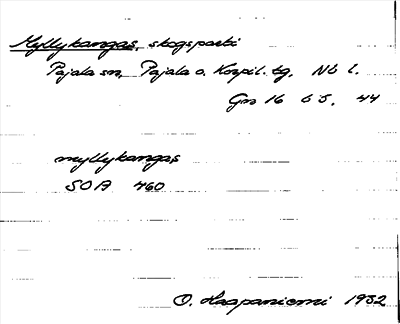 Myllykangas, skogsparti
Pajala sn. Pajala o. Korpil. tg. Nb l.
Gn 16 65. 44
myllykangas
SOA 460
O. Haapaniemi 1932